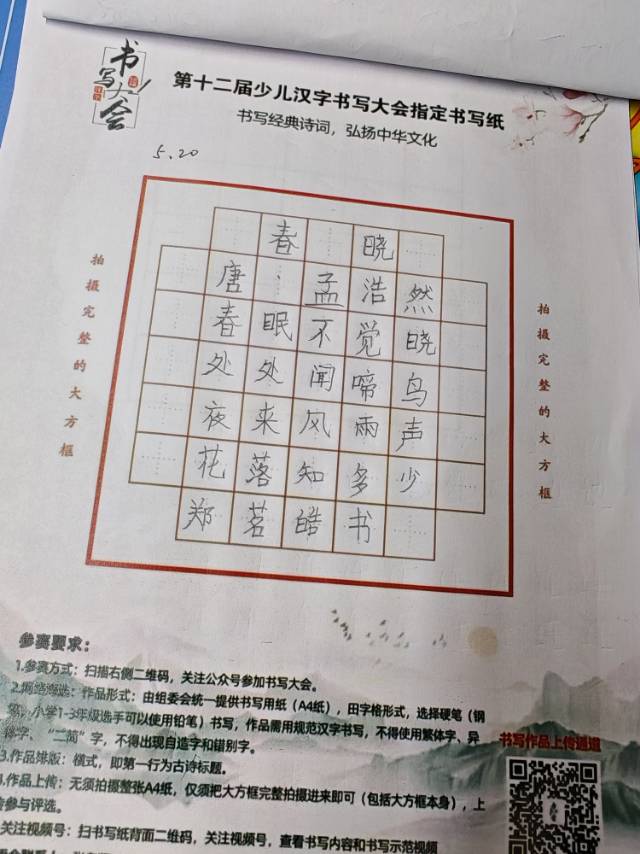 书写大会
第十二届少儿汉字书写大会指定书写纸
书写经典诗词，弘扬中华文化
5.20
春 晓
唐·孟浩然
春眠不觉晓
处处闻啼鸟
夜来风雨声
花落知多少
郑茗皓书
拍摄完整的大方框
拍摄完整的大方框
参赛要求：
1.参赛方式：扫描右侧二维码，关注公众号参加书写大会。
2.网络海选：作品形式：由组委会统一提供书写用纸（A4纸），田字格形式，选择硬笔（钢
，小学1-3年级选手可以使用铅笔）书写，作品需用规范汉字书写，不得使用繁体字、异
体字、“二简”字，不得出现自造字和错别字。
3.作品排版：横式，即第一行为古诗标题。
4.作品上传：无须拍摄整张A4纸，仅须把大方框完整拍摄进来即可（包括大方框本身），上
参与评选。
关注视频号：扫书写纸背面二维码，关注视频号，查看书写内容和书写示范视频
书写作品上传通道